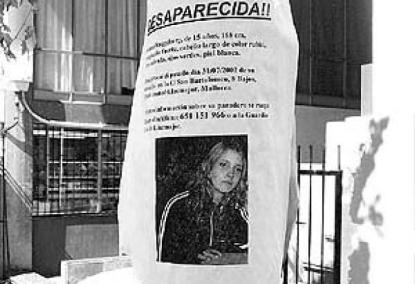 DESAPARECIDA!!
de 15 años, 168 cm,
fuerte, cabello largo de color rubio,
ojos verdes, piel blanca.
pasado día 31/07/2002 de su
en la C/ San Bartolomeo, 8 Bajos,
Llucmajor, Mallorca.
información sobre su paradero se ruega
teléfono: 650 151 966 o a la Guardia
de Llucmajor.